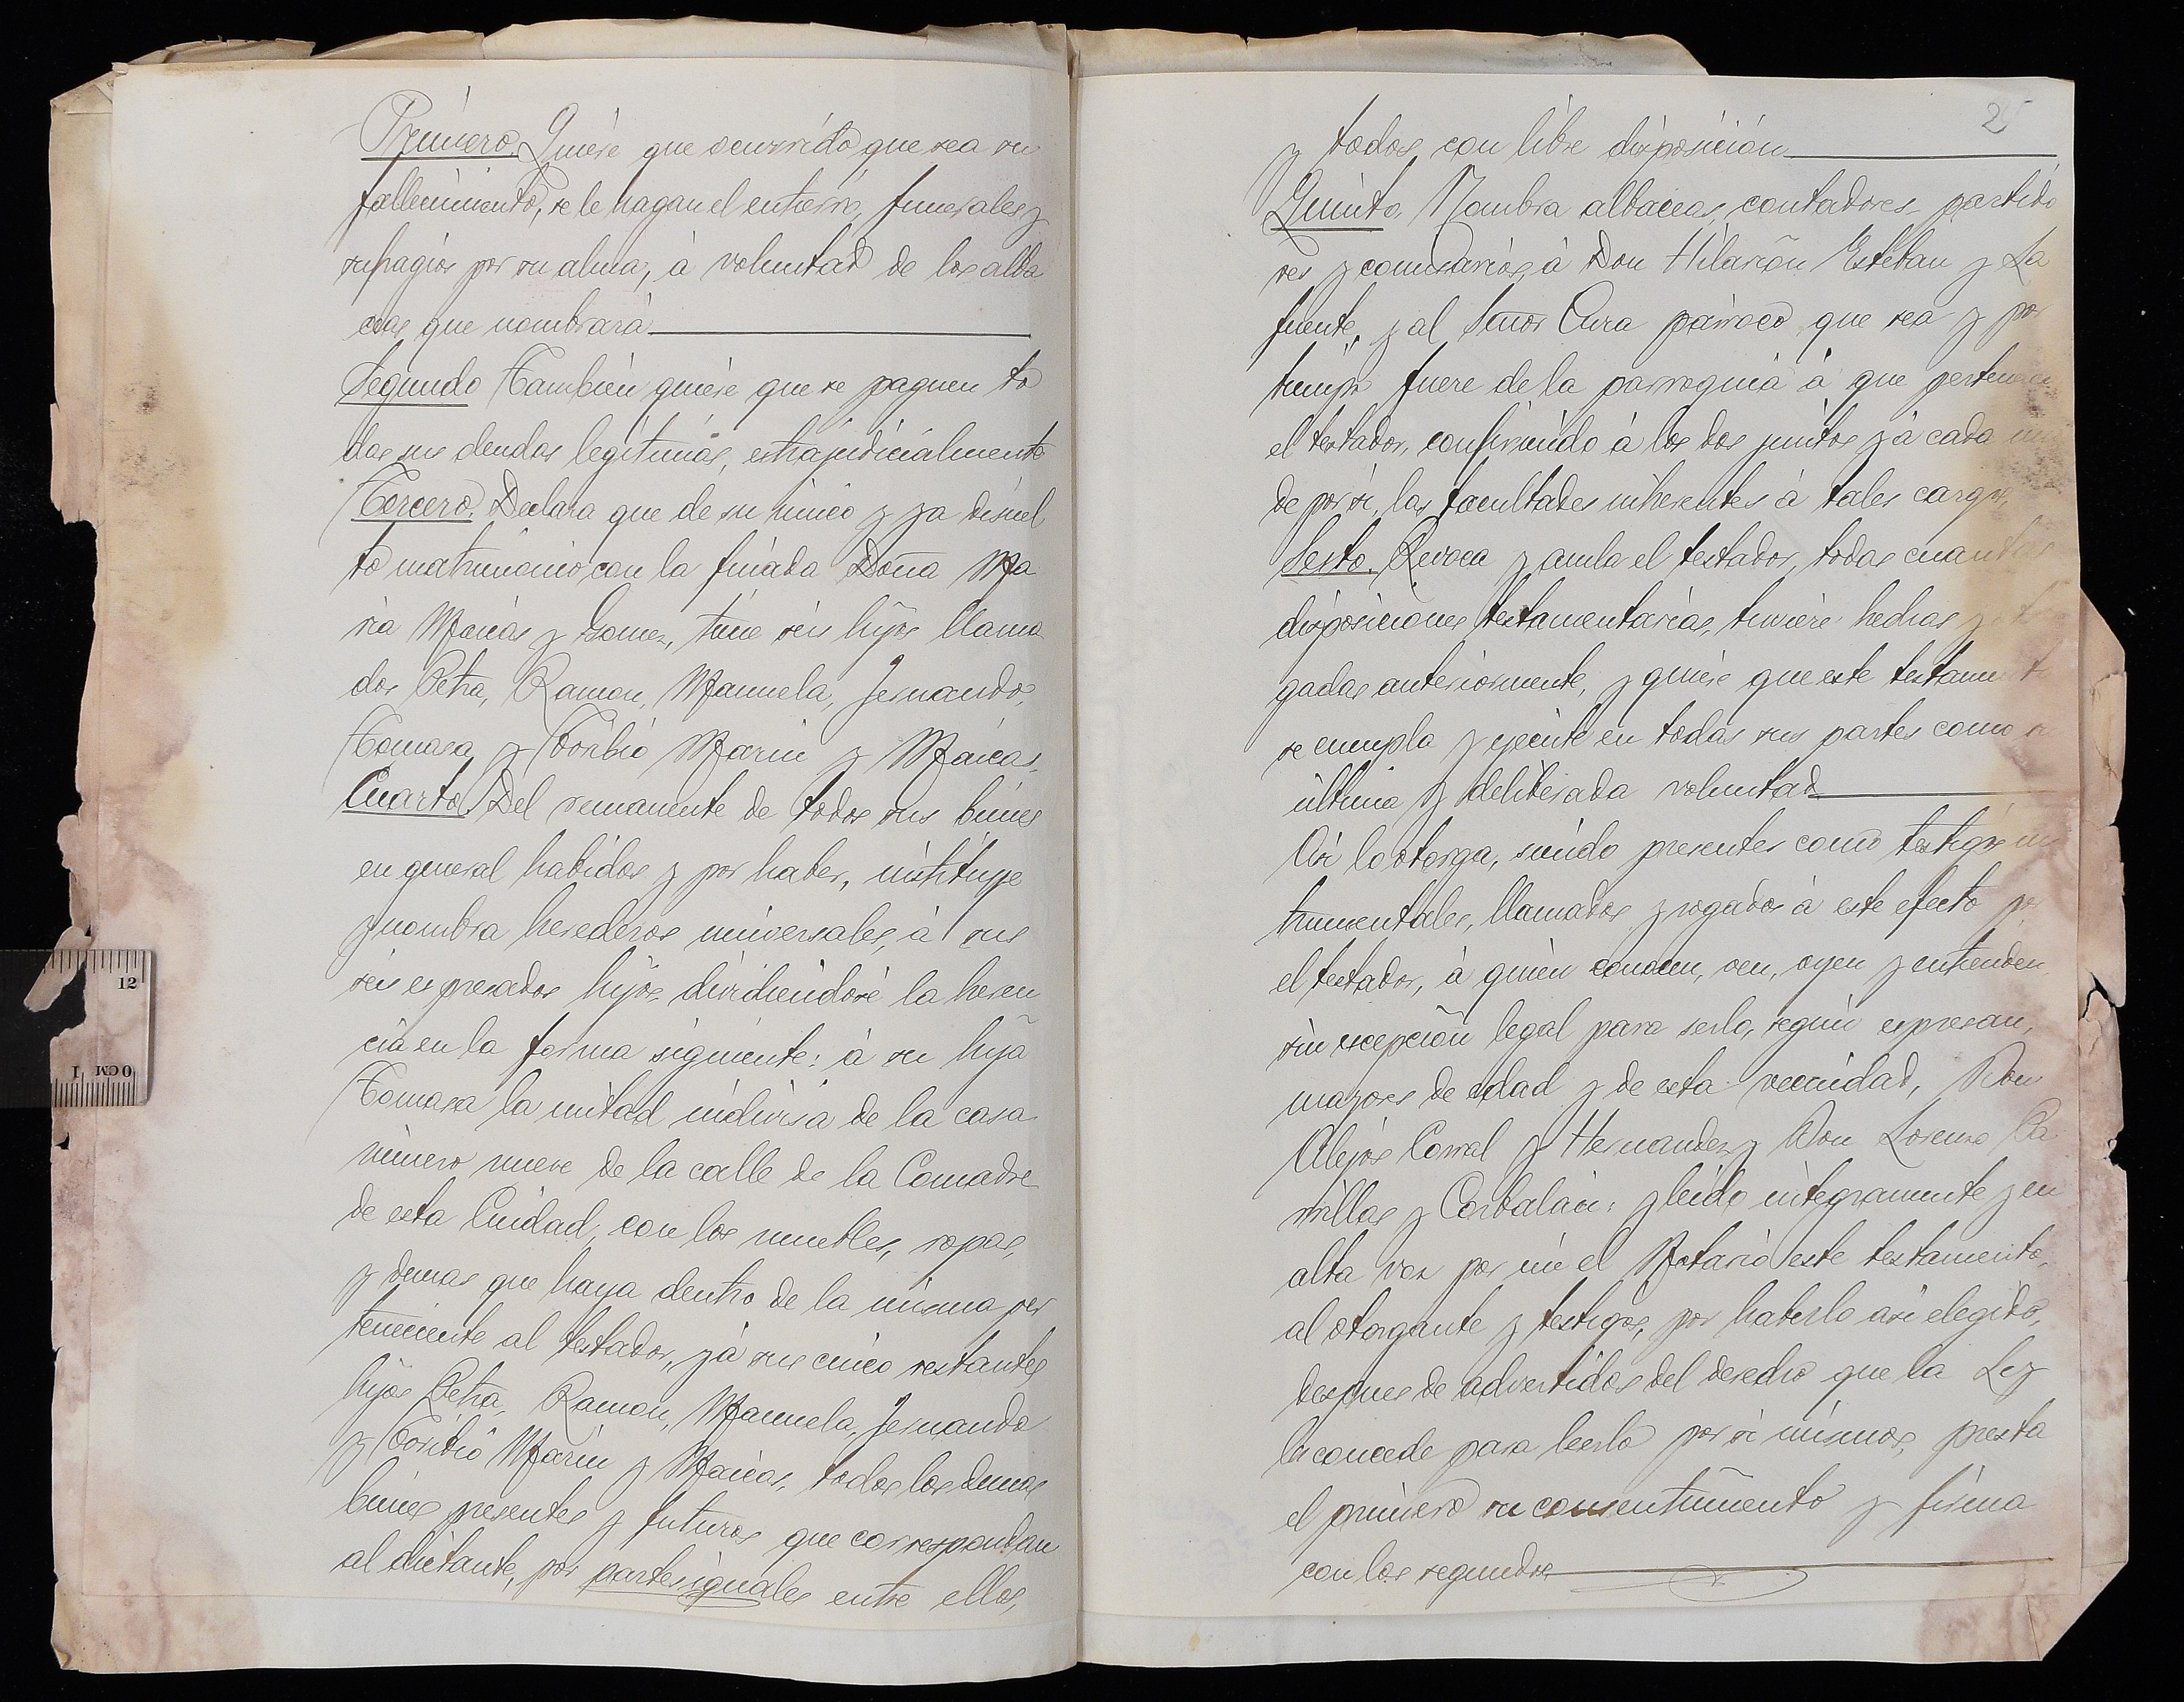 Primero. Quiere que ocurrido que sea su
fallecimiento, se le hagan el entierro, funerales y
sufragios por su alma, á voluntad de los alba
ceas que nombrará
Segundo También quiere que se paguen to
das sus deudas legítimas, extrajudicialmente
Tercero. Declara que de su único y ya disuel
to matrimonio con la finada Doña Ma
ria Macias y Gomez, tiene seis hijos llama
dos Petra, Ramon, Manuela, Fernando,
Tomasa y Toribio Marin y Macias.
Cuarto. Del remanente de todos sus bienes
en general habidos y por haber, instituye
y nombra herederos universales, á sus
seis expresados hijos dividiendose la heren
cia en la forma siguiente: á su hija
Tomasa la mitad indivisa de la casa
número nueve de la calle de la Comadre
de esta Ciudad, con los muebles, ropas,
y demas que haya dentro de la misma per
teneciente al testador, y á sus cinco restantes
hijos Petra, Ramon, Manuela, Fernando
y Toribio Marin y Macias, todos los demas
bienes presentes y futuros que correspondan
al dictante, por partes iguales entre ellos,
25
y todos con libre disposición
Quinto. Nombra albaceas, contadores-partido
res y comisarios, á Don Hilarión Esteban y La
fuente, y al Señor Cura párroco que sea y por
tiempo fuere de la parroquia á que pertenece
el testador, confiriendo á los dos juntos y á cada uno
de por si, las facultades inherentes á tales cargos,
Sesto. Revoca y anula el testador, todas cuantas
disposiciones testamentarias, tuviere hechas y
gadas anteriormente, y quiere que este testamento
se cumpla y ejecute en todas sus partes como su
última y deliberada voluntad
Asi lo otorga, siendo presentes como testigos ins
trumentales, llamados y rogados á este efecto por
el testador, á quien conocen, ven, oyen y entienden
sin excepción legal para serlo, según espresan,
mayores de edad y de esta vecindad, Don
Alejos Corral y Hernandez y Don Lorenzo Ca
millas y Corbalán: y leido íntegramente y en
alta voz por mi el Notario este testamento,
al otorgante y testigos, por haberlo asi elegido,
despues de advertidos del derecho que la Ley
les concede para leerlo por si mismos, presta
el primero su consentimiento y firma
con los segundos